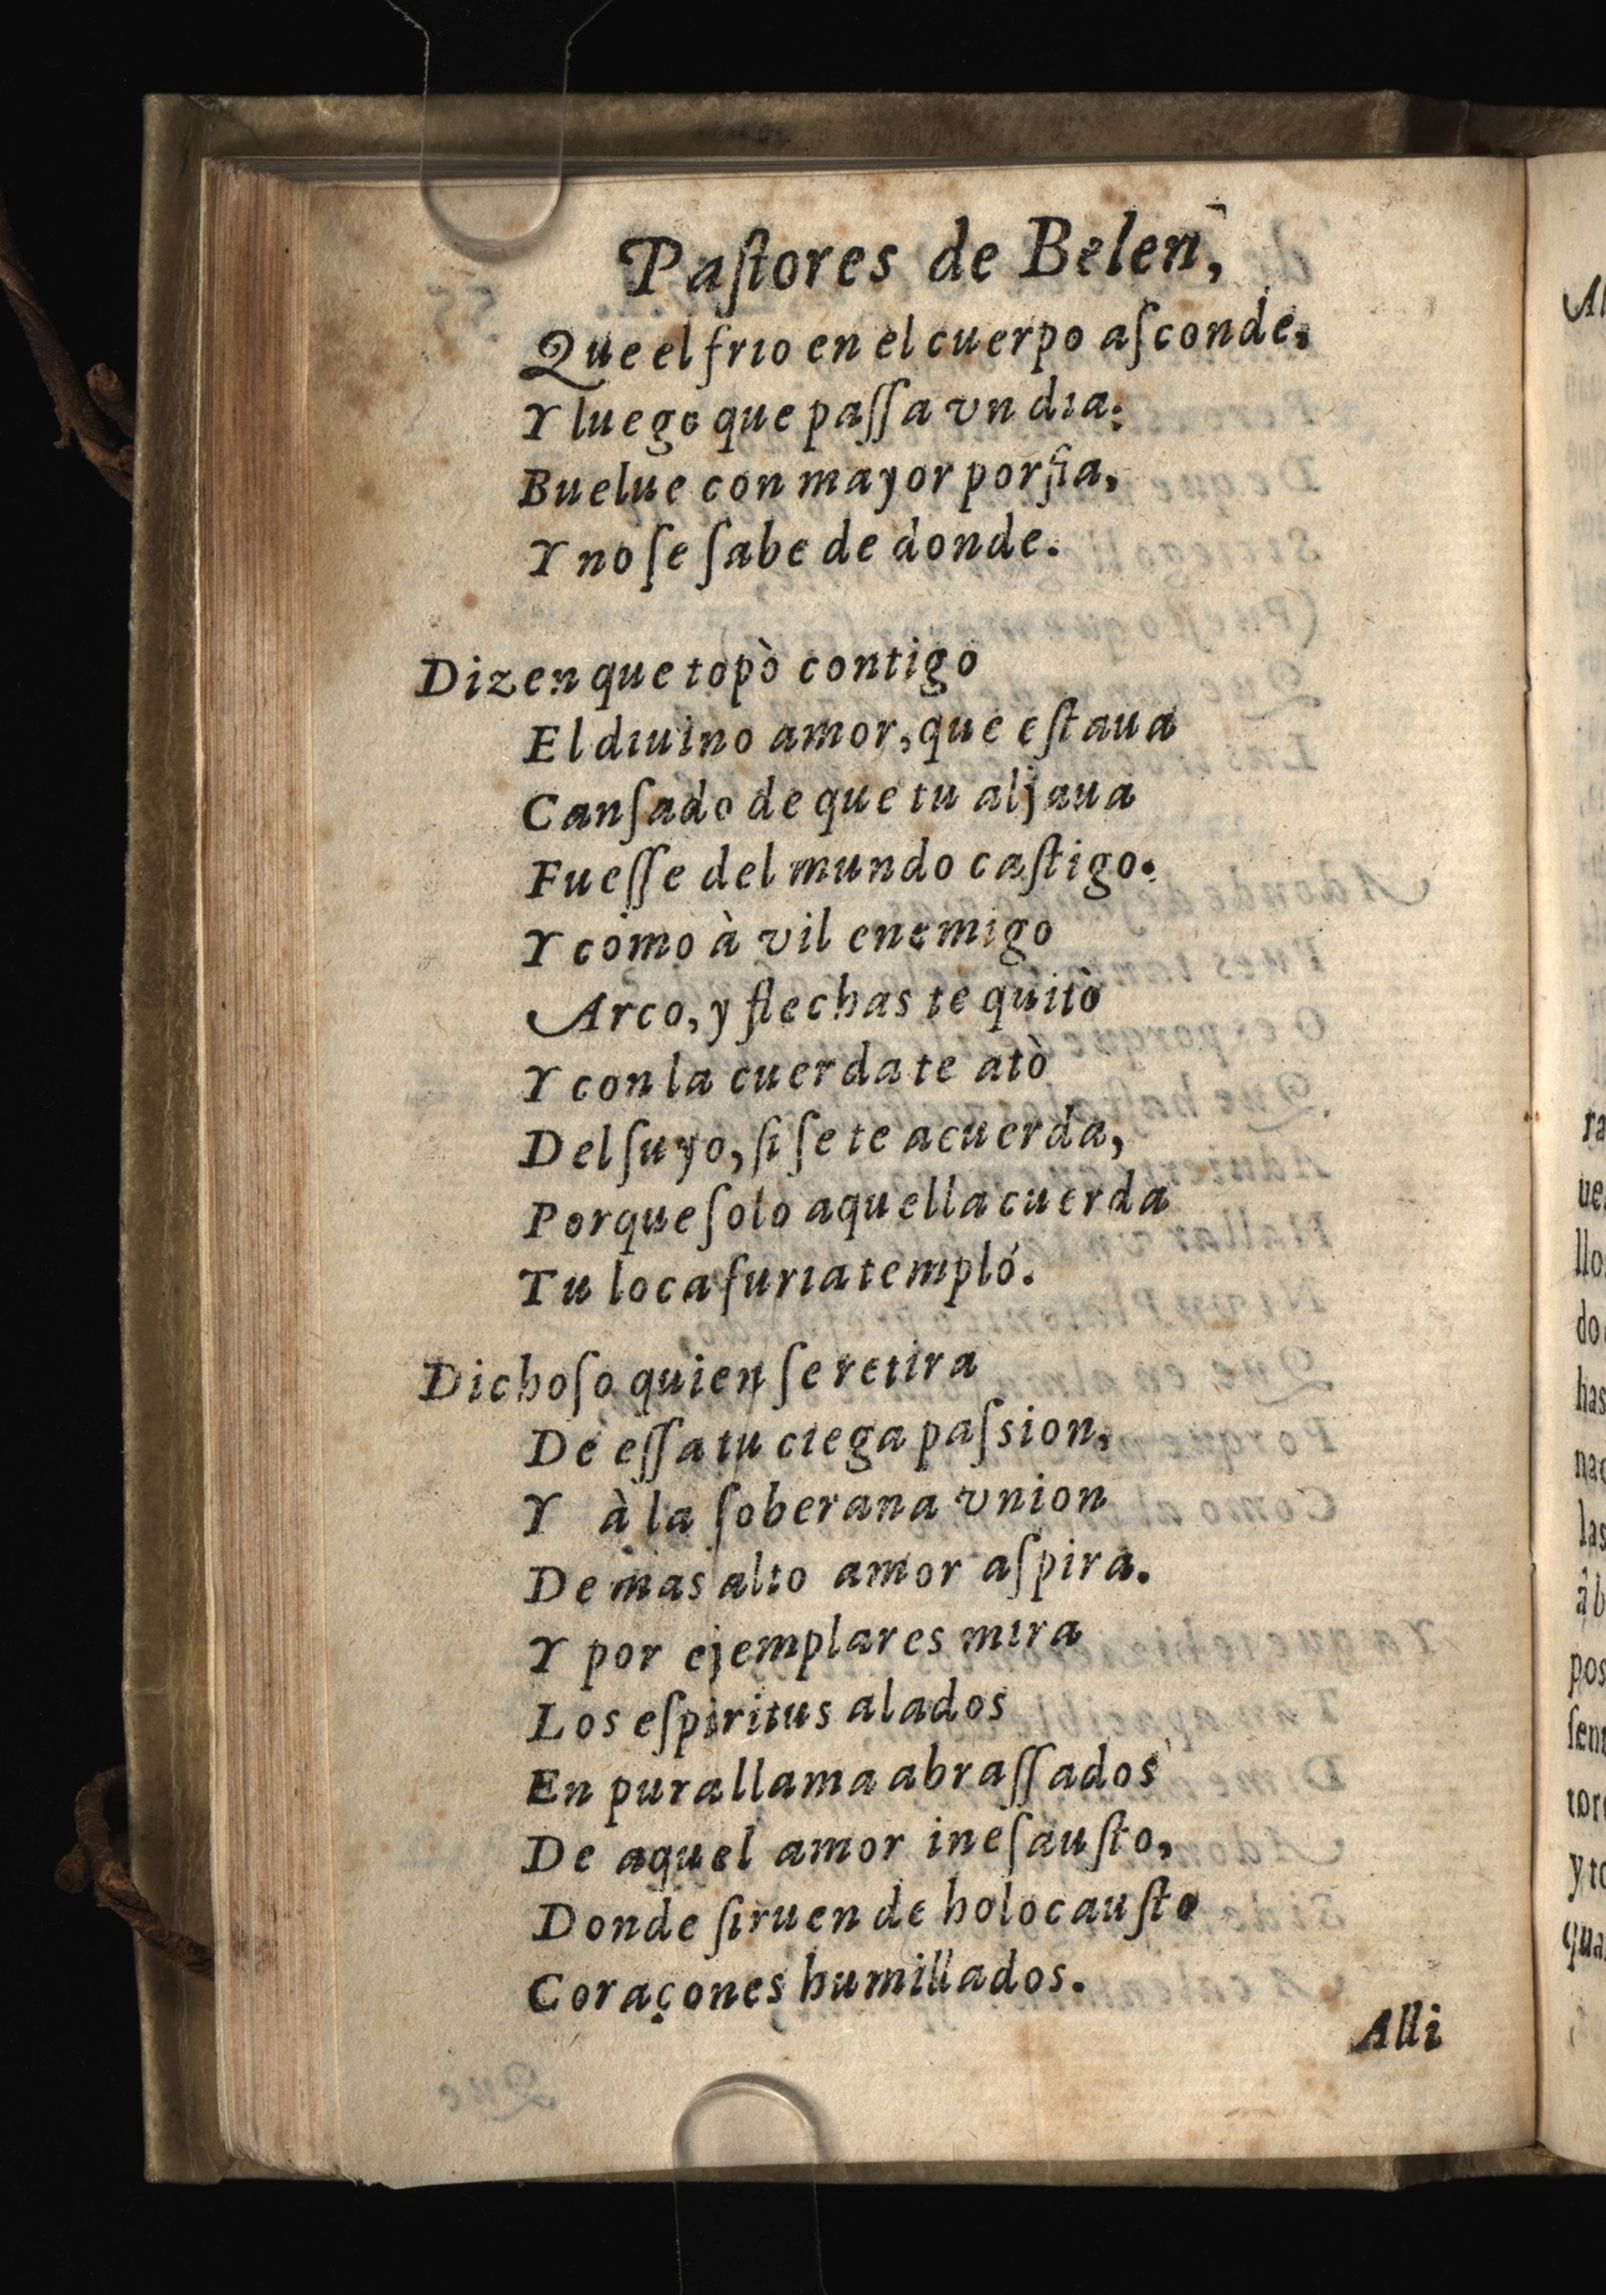 Paſtores de Belen,
Que el frio en el cuerpo aſconde,
Y luego que paſſa vn dia:
Buelue con mayor porfia,
Y no ſe ſabe de donde.
Dizen que topò contigo
El diuino amor, que eſtaua
Canſado de que tu aljaua
Fueſſe del mundo caſtigo.
Y como à vil enemigo
Arco, y flechas te quitò
Y con la cuerda te atò
Del ſuyo, ſi ſe te acuerda,
Porque ſolo aquella cuerda
Tu loca furia templó.
Dichoſo quien ſe retira
De eſſa tu ciega paſsion,
Y à la ſoberana vnion
De mas alto amor aſpira.
Y por ejemplares mira
Los eſpiritus alados
En pura llama abraſſados
De aquel amor ineſauſto,
Donde ſiruen de holocauſto
Coraçones humillados.
Alli